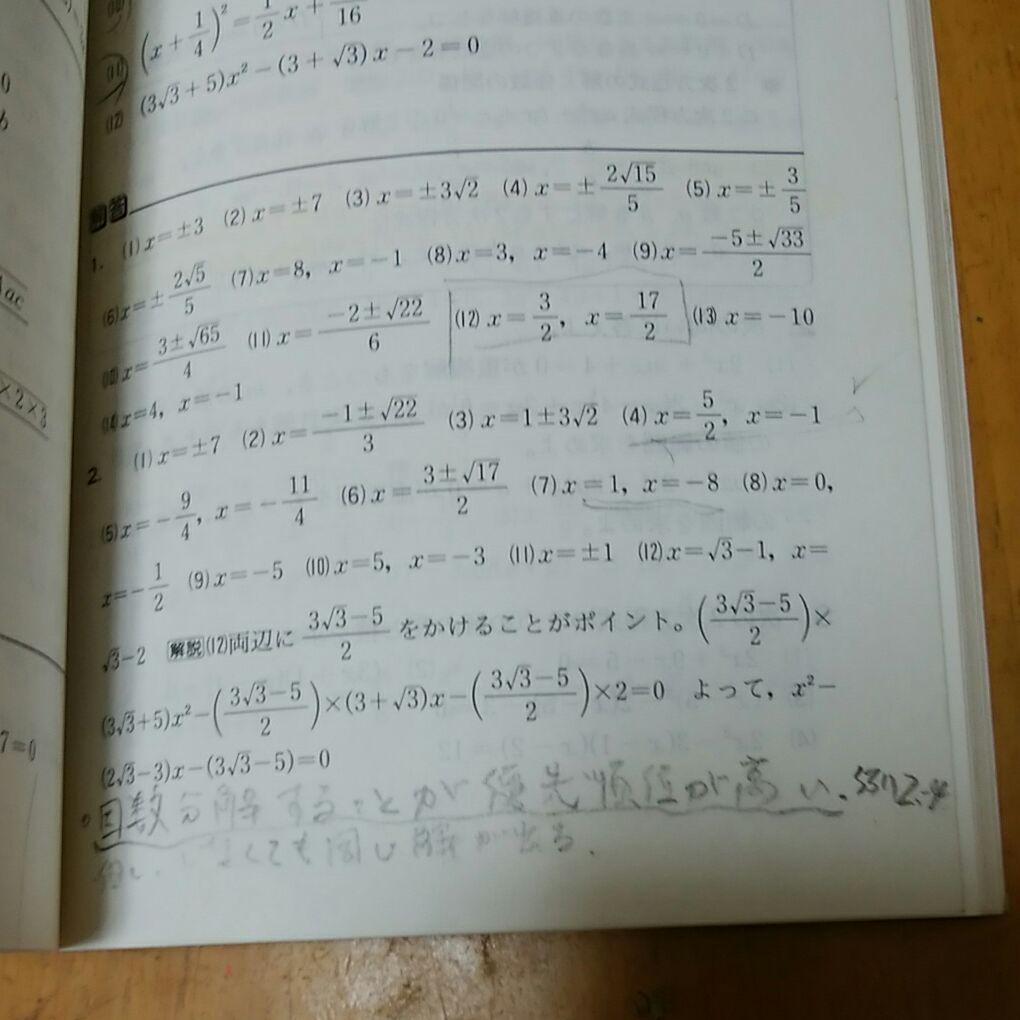 (x+1/4)²=1/2x+ /16
(12) (3√3+5)x²-(3+√3)x-2=0
解答
1. (1)x=±3 (2)x=±7 (3)x=±3√2 (4)x=±2√15/5 (5)x=±3/5
(6)x=±2√5/5 (7)x=8, x=-1 (8)x=3, x=-4 (9)x=(-5±√33)/2
(10)x=(3±√65)/4 (11)x=(-2±√22)/6 (12)x=3/2, x=17/2 (13)x=-10
(14)x=4, x=-1
2. (1)x=±7 (2)x=(-1±√22)/3 (3)x=1±3√2 (4)x=5/2, x=-1
(5)x=-9/4, x=-11/4 (6)x=(3±√17)/2 (7)x=1, x=-8 (8)x=0,
x=-1/2 (9)x=-5 (10)x=5, x=-3 (11)x=±1 (12)x=√3-1, x=
√3-2 [解説](12)両辺に(3√3-5)/2をかけることがポイント。((3√3-5)/2)×
(3√3+5)x²-((3√3-5)/2)×(3+√3)x-((3√3-5)/2)×2=0 よって, x²-
(2√3-3)x-(3√3-5)=0
因数分解することが優先順位が高い.
しなくても同じ解が出る.
ac
×2×3
7=0